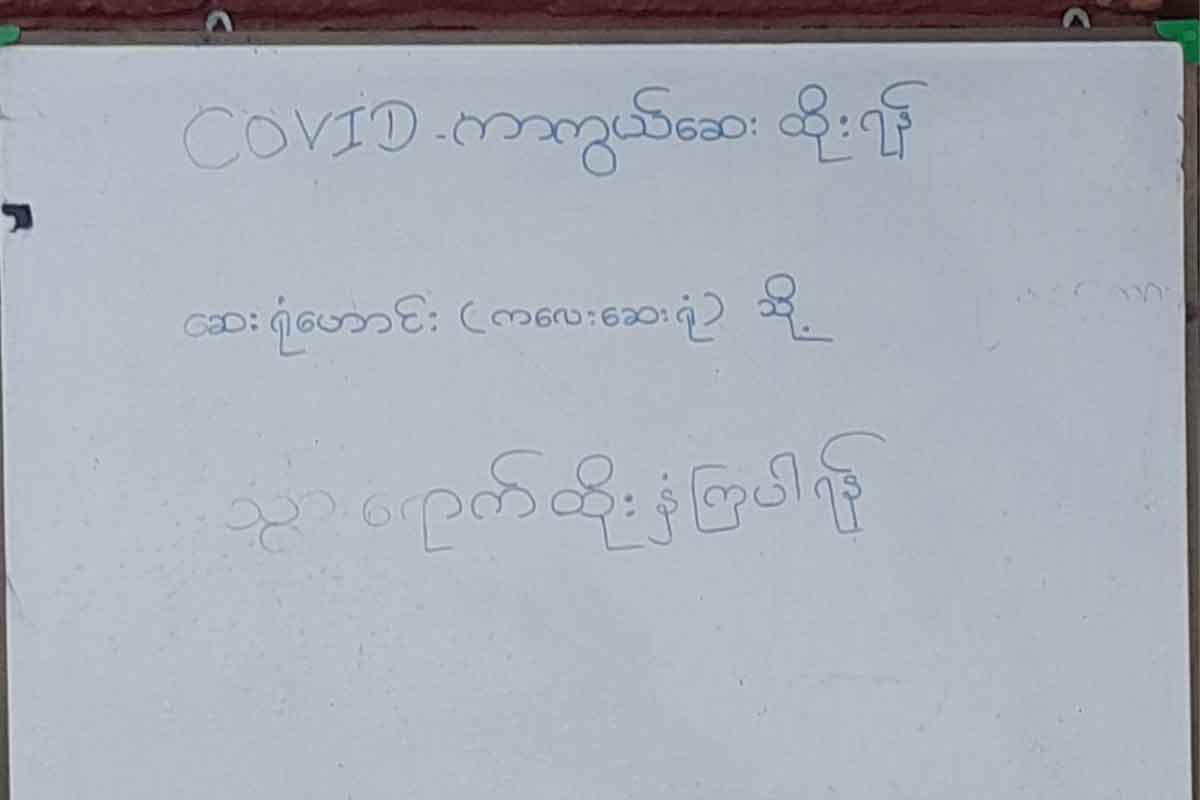 COVID - ကာကွယ်ဆေး ထိုးရန်
ဆေးရုံဟောင်း (ကလေးဆေးရုံ) သို့
သွားရောက်ထိုးနှံကြပါရန်